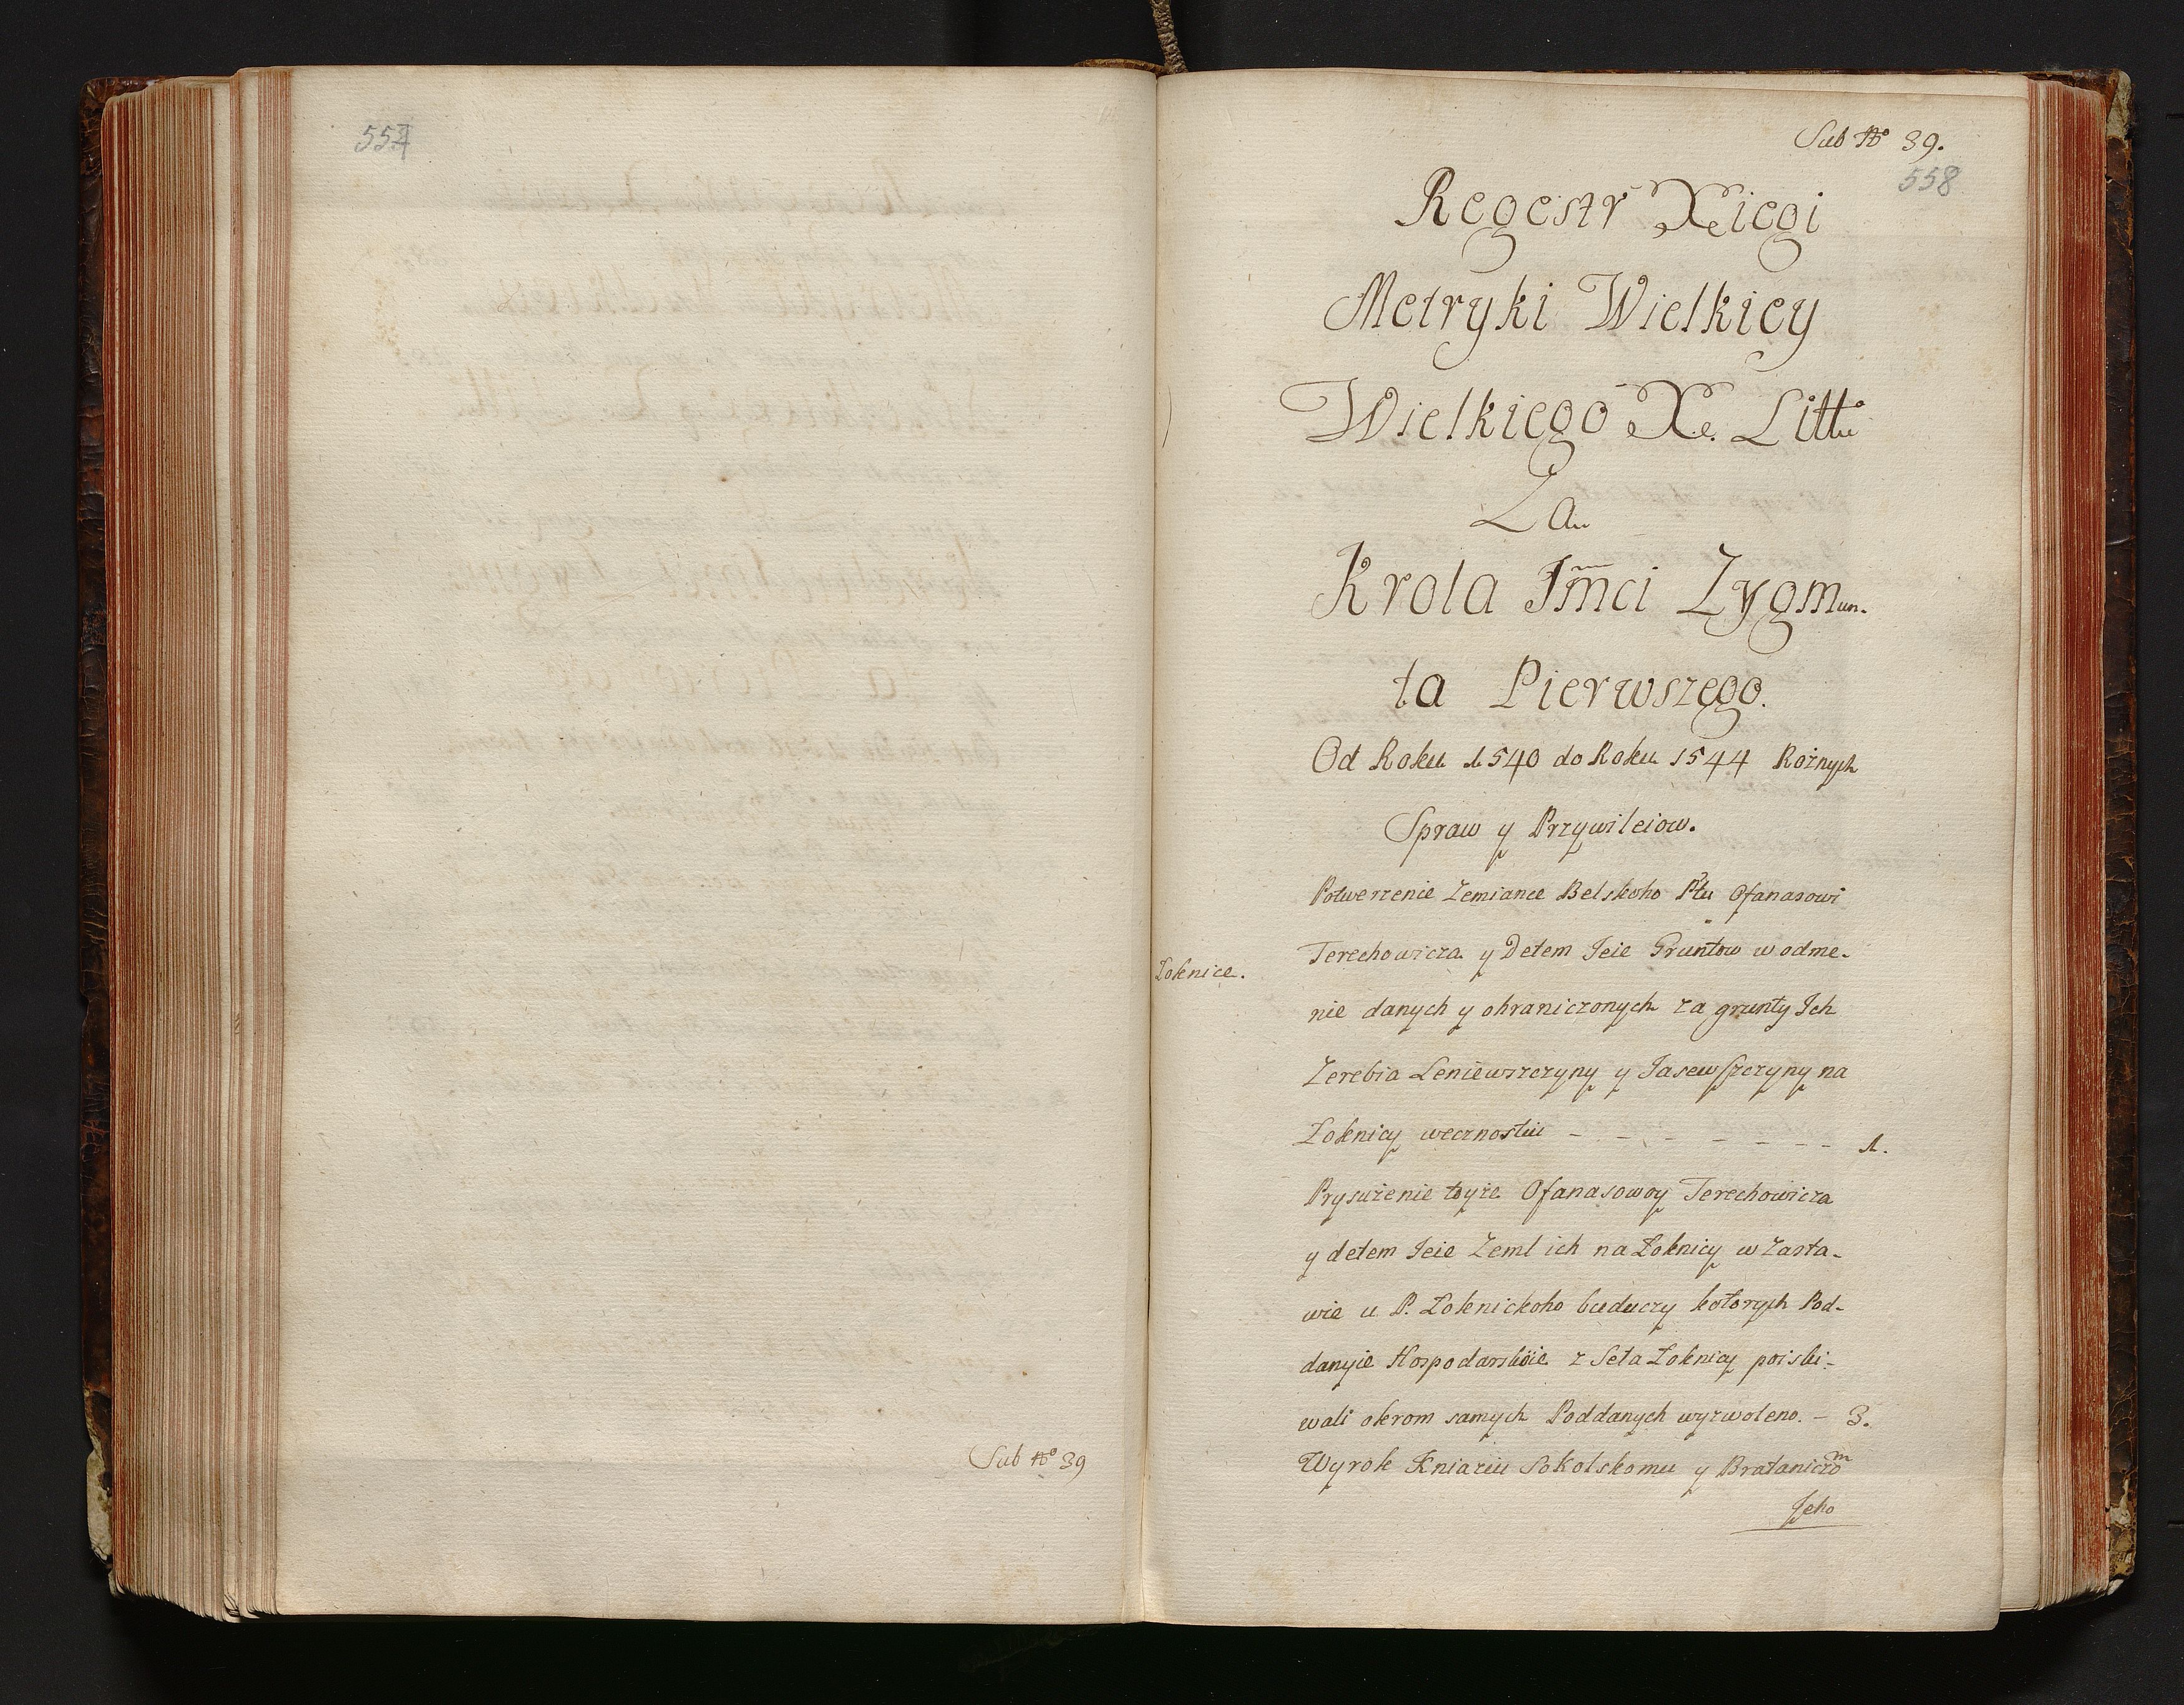 557
Sub No 39
Sub No 39.
558
Regestr Xięgi
Metryki Wielkiey
Wielkiego Xe. Litte
Za
Krola Jmci Zygmun-
ta Pierwszego.
Od Roku 1540 do Roku 1544 Rożnych
Spraw y Przywileiow.
Potwerżenie Zemiance Belskoho Ptu Ofanasowi
Terechowicza y Detem Jeie Gruntow w odme-
Łoknice.
nie danych y ohraniczonych za grunty Jch
Zerebia Leniewszczyny y Jasewszczyny na
Łoknicy wecznostiu - - - - - - - 1.
Prysużenie toyże Ofanasowoy Terechowicza
y detem Jeie Zeml ich na Łoknicy w Zasta-
wie u P. Łoknickoho buduczy kotorych Pod-
danyie Hospodarskoie z Seła Łoknicy poiski-
wali okrom samych Poddanych wyzwoleno. - 3.
Wyrok Kniaziu Sokolskomu y Brataniczom
Jeho